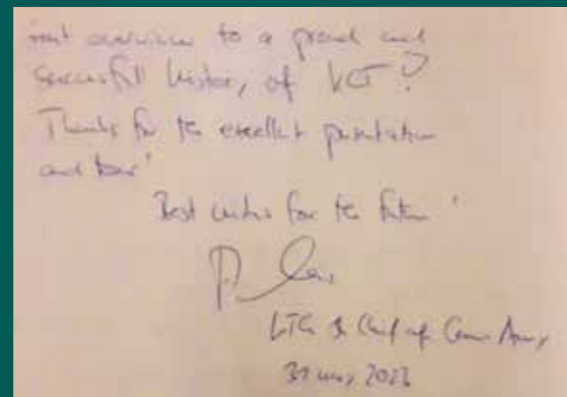 overview to a proud and
successfull history of KCT!
Thanks for the excellent presentation
and tour!
Best wishes for the future!
LTG & Chief of German Army
31 may 2023